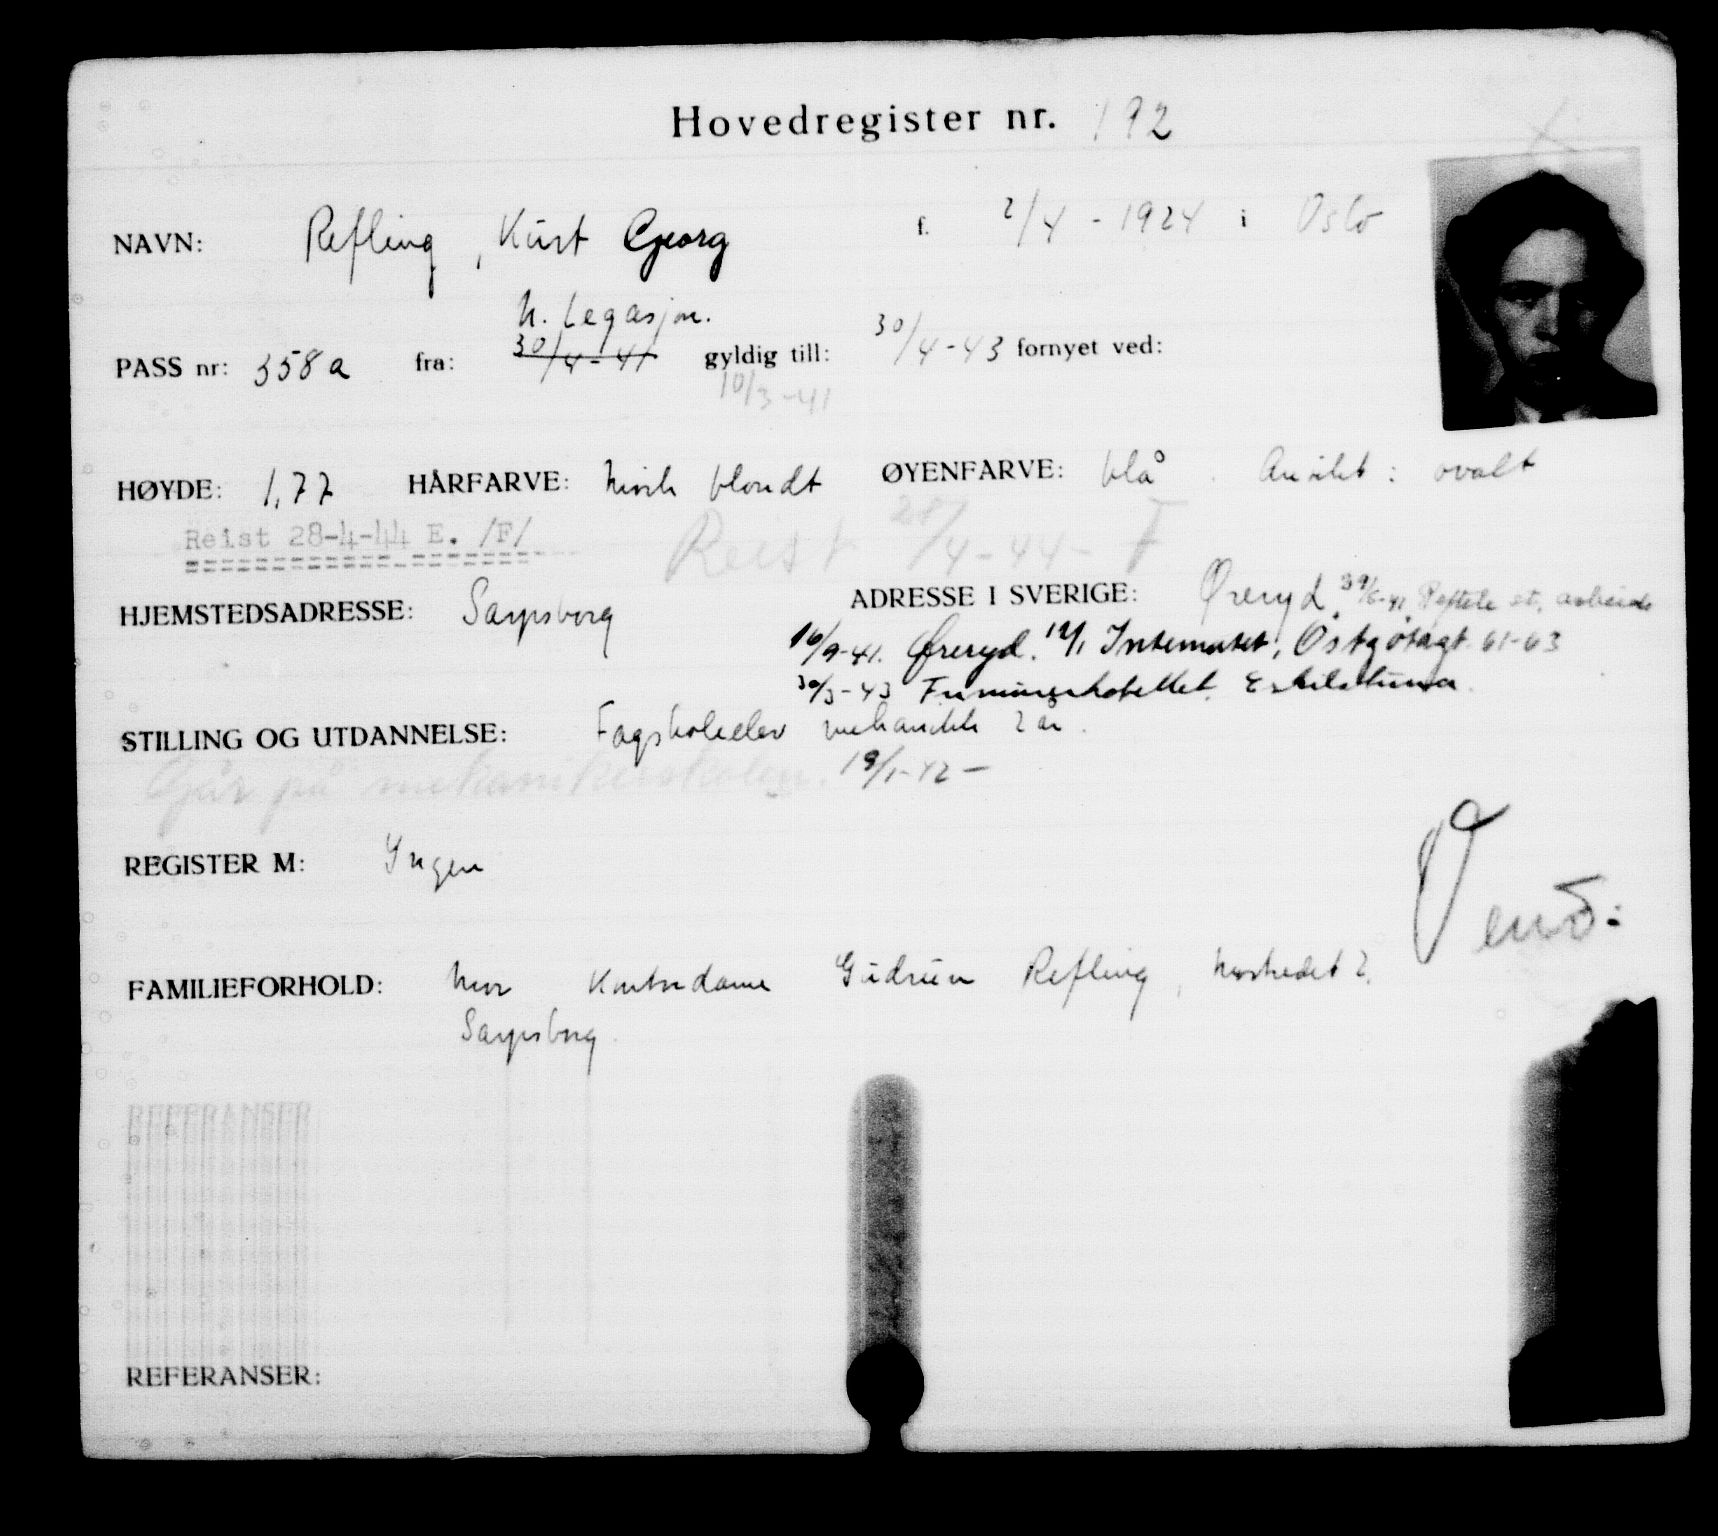 Hovedregister nr. 192
NAVN: Refling, Kurt Georg f. 2/4 - 1924 i Oslo
N. Legasjon.
PASS nr: 358a fra: 30/4 - 41 gyldig till: 30/4 - 43 fornyet ved:
10/3 - 41
HØYDE: 1,77 HÅRFARVE: mørk blondt ØYENFARVE: blå. Ansikt: ovalt
Reist 28-4-44 E. /F/ Reist 28/4 - 44 - F
HJEMSTEDSADRESSE: Sarpsborg ADRESSE I SVERIGE: Öreryd. Reftele st. arbeide
16/9-41. Öreryd. 12/1 Internatet, Östgötagt. 61-63
30/3-43 Eskilstuna.
STILLING OG UTDANNELSE: Fagskoleelev mekanikk 2 år.
Går på mekanikerskolen. 19/1-42 -
REGISTER M: Ingen
Vend:
FAMILIEFORHOLD: Mor Kontordame Gudrun Refling,
Sarpsborg.
REFERANSER
REFERANSER: